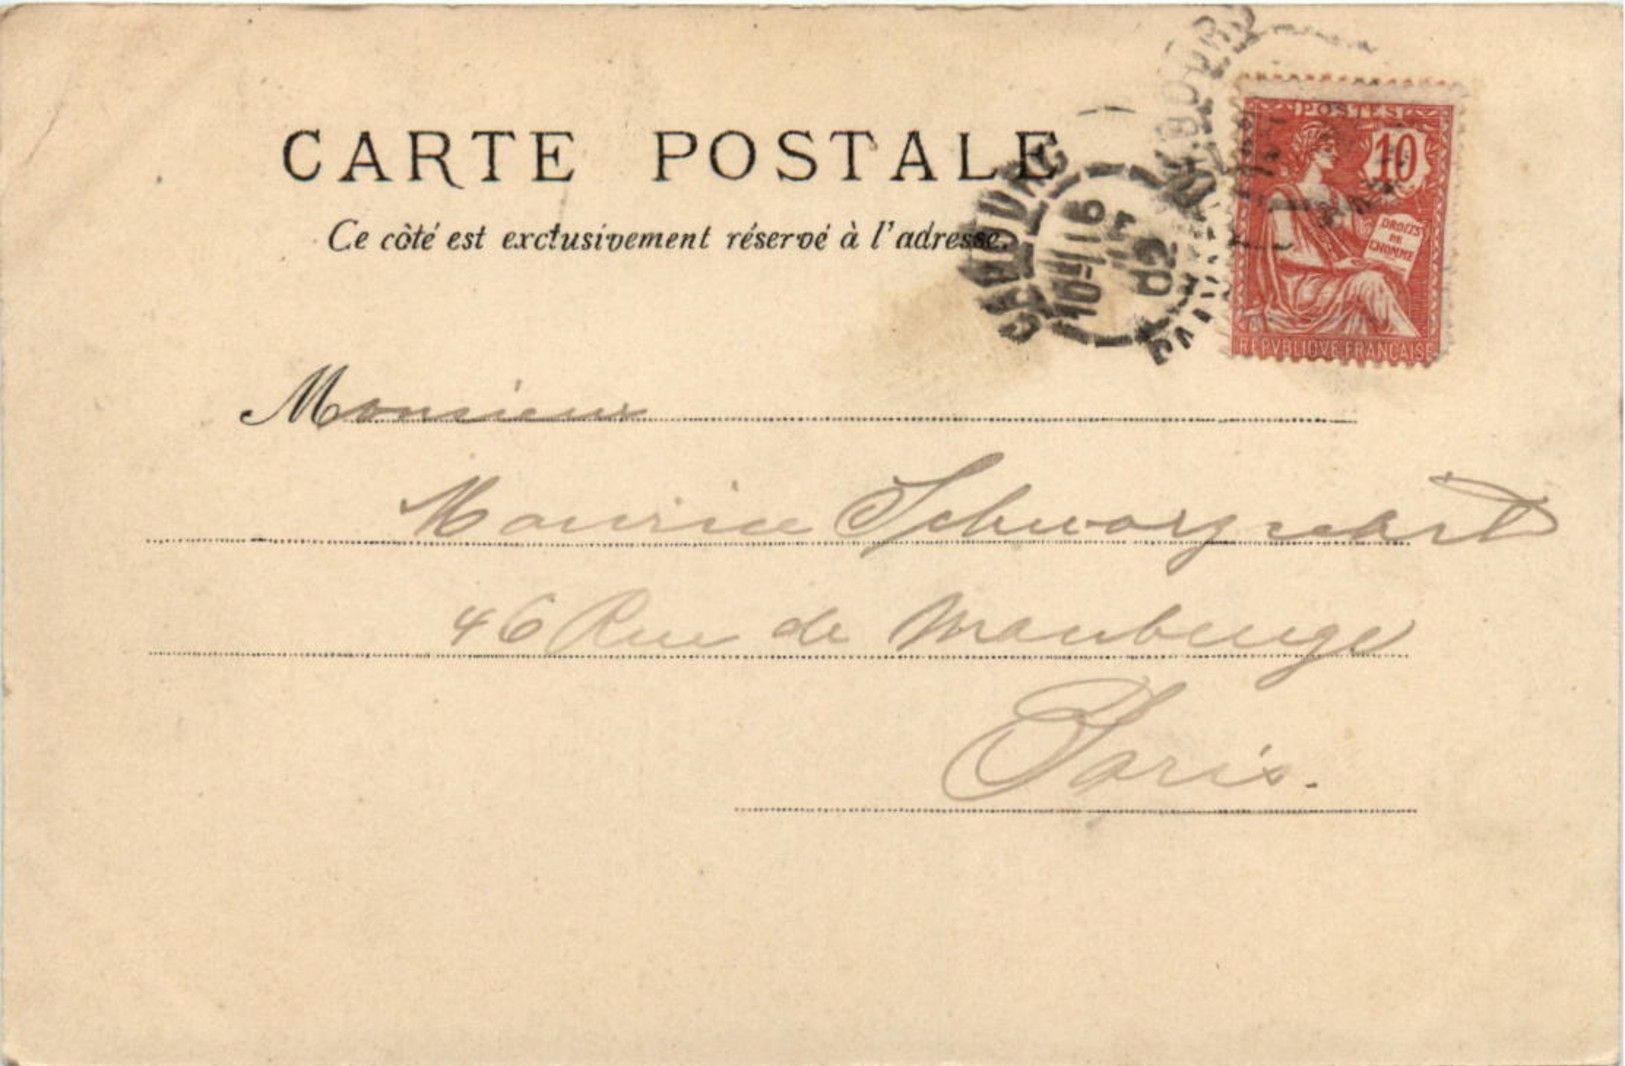 CARTE POSTALE
Ce côté est exclusivement réservé à l'adresse.
POSTES
10
DROITS
DE
L'HOMME
REPVBLIQVE FRANCAISE
CABOURG
10 16
02
Monsieur
Maurice
46 Rue de Maubeuge
Paris.